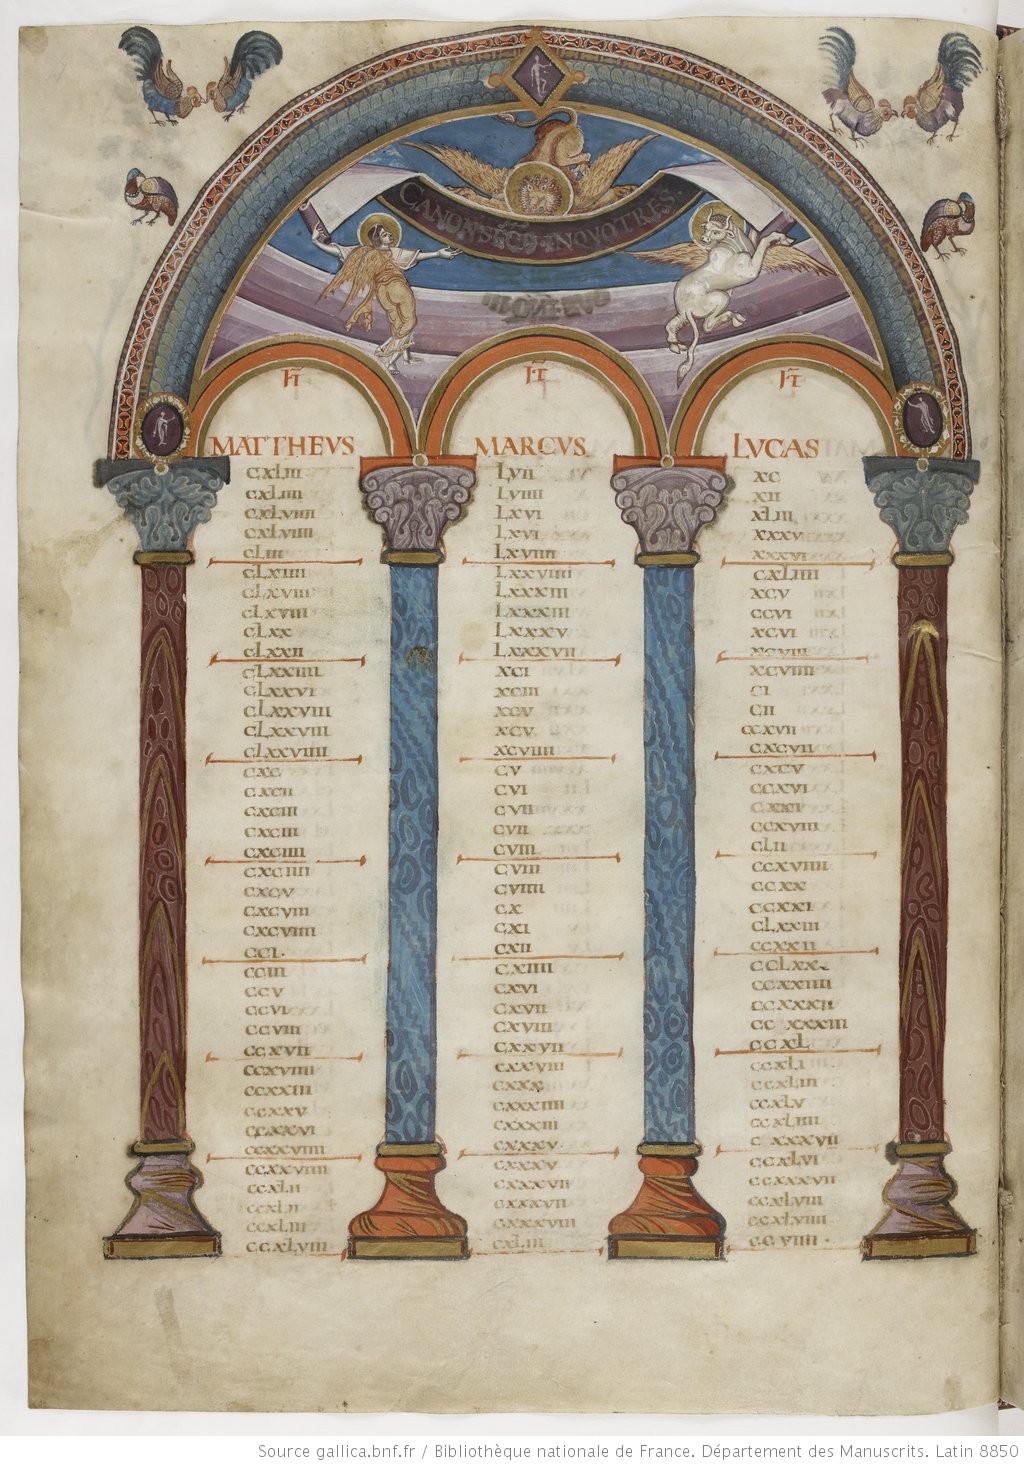 CANON SECUN IN QUO TRES
MATTHEVS
CXLIII
CXLIIII
CXLVIIII
CXLVIIII
CLIII
CLXIIII
CLXVIII
CLXVIII
CLXX
CLXXII
CLXXIIII
CLXXVI
CLXXVIII
CLXXVIII
CLXXVIIII
CXC
CXCII
CXCIII
CXCIII
CXCIIII
CXCIIII
CXCV
CXCVIII
CXCVIIII
CCI.
CCIII
CCV
CCVI
CCVIII
CCXVII
CCXVIII
CCXXIII
CCXXV
CCXXVI
CCXXVIIII
CCXXVIIII
CCXLII
CCXLII
CCXLIII
CCXLVIII
MARCVS
LVII
LVIIII
LXVI
LXVI
LXVIIII
LXXVIIII
LXXXIII
LXXXIII
LXXXV
LXXXVII
XCI
XCIII
XCV
XCV
XCVIIII
CV
CVI
CVII
CVII
CVIII
CVIII
CVIIII
CX
CXI
CXII
CXIIII
CXVI
CXVII
CXVIII
CXXVII
CXXVIII
CXXX
CXXXIIII
CXXXIII
CXXXV
CXXXV
CXXXVII
CXXXVII
CXXXVIII
CXLIII
LVCAS
XC
XII
XLIII
XXXV
XXXVI
CXLIIII
XCV
CCVI
XCVI
XCVIII
XCVIIII
CI
CII
CCXVII
CXCVII
CXCV
CCXVI
CXXI
CCXVIII
CLII
CCXVIIII
CCXX
CCXXI
CLXXIII
CCXXII
CCLXX
CCXXIIII
CCXXXII
CCXXXIII
CCXL
CCXLI
CCXLIII
CCXLV
CCXLIIII
C XXXVII
CCXLVI
CCXXXVII
CCXLVIII
CCXLVIIII
CCVIIII.
Source gallica.bnf.fr / Bibliothèque nationale de France. Département des Manuscrits. Latin 8850